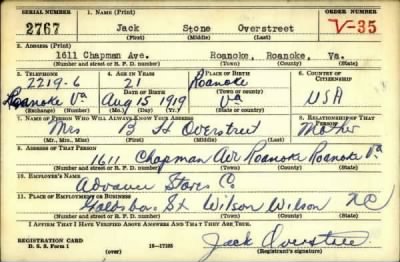 SERIAL NUMBER 1. NAME (Print) ORDER NUMBER
2767 Jack Stone Overstreet V-35
(First) (Middle) (Last)
2. ADDRESS (Print)
1611 Chapman Ave. Roanoke, Roanoke, Va.
(Number and street or R. F. D. number) (Town) (County) (State)
3. TELEPHONE 4. AGE IN YEARS 5. PLACE OF BIRTH 6. COUNTRY OF CITIZENSHIP
2219-6 21 Roanoke
DATE OF BIRTH (Town or county)
Roanoke Va Aug 15 1919 Va USA
(Exchange) (Number) (Mo.) (Day) (Yr.) (State or country)
7. NAME OF PERSON WHO WILL ALWAYS KNOW YOUR ADDRESS 8. RELATIONSHIP OF THAT PERSON
Mrs B H Overstreet Mother
(Mr., Mrs., Miss) (First) (Middle) (Last)
9. ADDRESS OF THAT PERSON
1611 Chapman Ave Roanoke Roanoke Va
(Number and street or R. F. D. number) (Town) (County) (State)
10. EMPLOYER'S NAME
Advance Stores Co
11. PLACE OF EMPLOYMENT OR BUSINESS
Goldsboro St Wilson Wilson NC
(Number and street or R. F. D. number) (Town) (County) (State)
I AFFIRM THAT I HAVE VERIFIED ABOVE ANSWERS AND THAT THEY ARE TRUE.
REGISTRATION CARD
D. S. S. Form 1 (over) 16-17125 Jack Overstreet
(Registrant's signature)